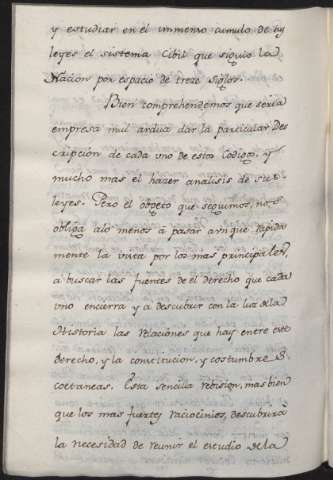 y estudiar en él immenso cumulo de sus
leyes el sistema Cibil que siguio la
Nacion por espacio de treze siglos.
Bien comprehendemos que seria
empresa mui ardua dar la particular Des
cripción de cada uno de estos Codigos, y
mucho mas el hazer analisis de sus
leyes. Pero el objeto que seguimos, nos
obliga alo menos á pasar aunque rapida
mente la vista por los mas principales,
a buscar las fuentes de él derecho que cada
uno encierra y a descubrir con la luz dela
Historia las relaciónes que hay entre este
derecho, y la constitucion, y costumbres
coetaneas. Esta sencilla rebision, mas bien
que los mas fuertes raciocinios, descubrirá
la necesidad de reunir el estudio dela